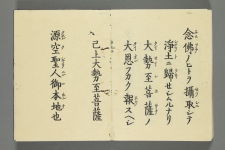 念佛ノヒトヲ攝取シテ
淨土ニ歸セシムルナリ
大勢至菩薩ノ
大恩フカク報スヘシ
已上大勢至菩薩
源空聖人御本地也